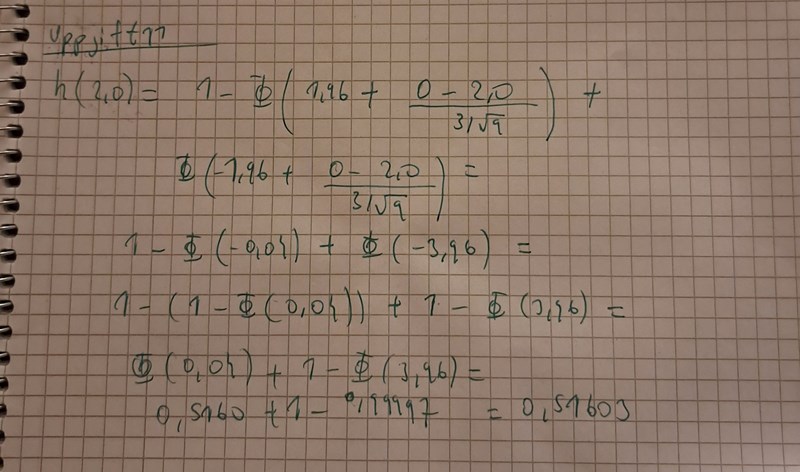 Uppgift 11
h(2,0) = 1 - Φ(1,96 + (0 - 2,0)/(3/√9)) +
Φ(-1,96 + (0 - 2,0)/(3/√9)) =
1 - Φ(-0,04) + Φ(-3,96) =
1 - (1 - Φ(0,04)) + 1 - Φ(3,96) =
Φ(0,04) + 1 - Φ(3,96) =
0,5160 + 1 - 0,99997 = 0,51603